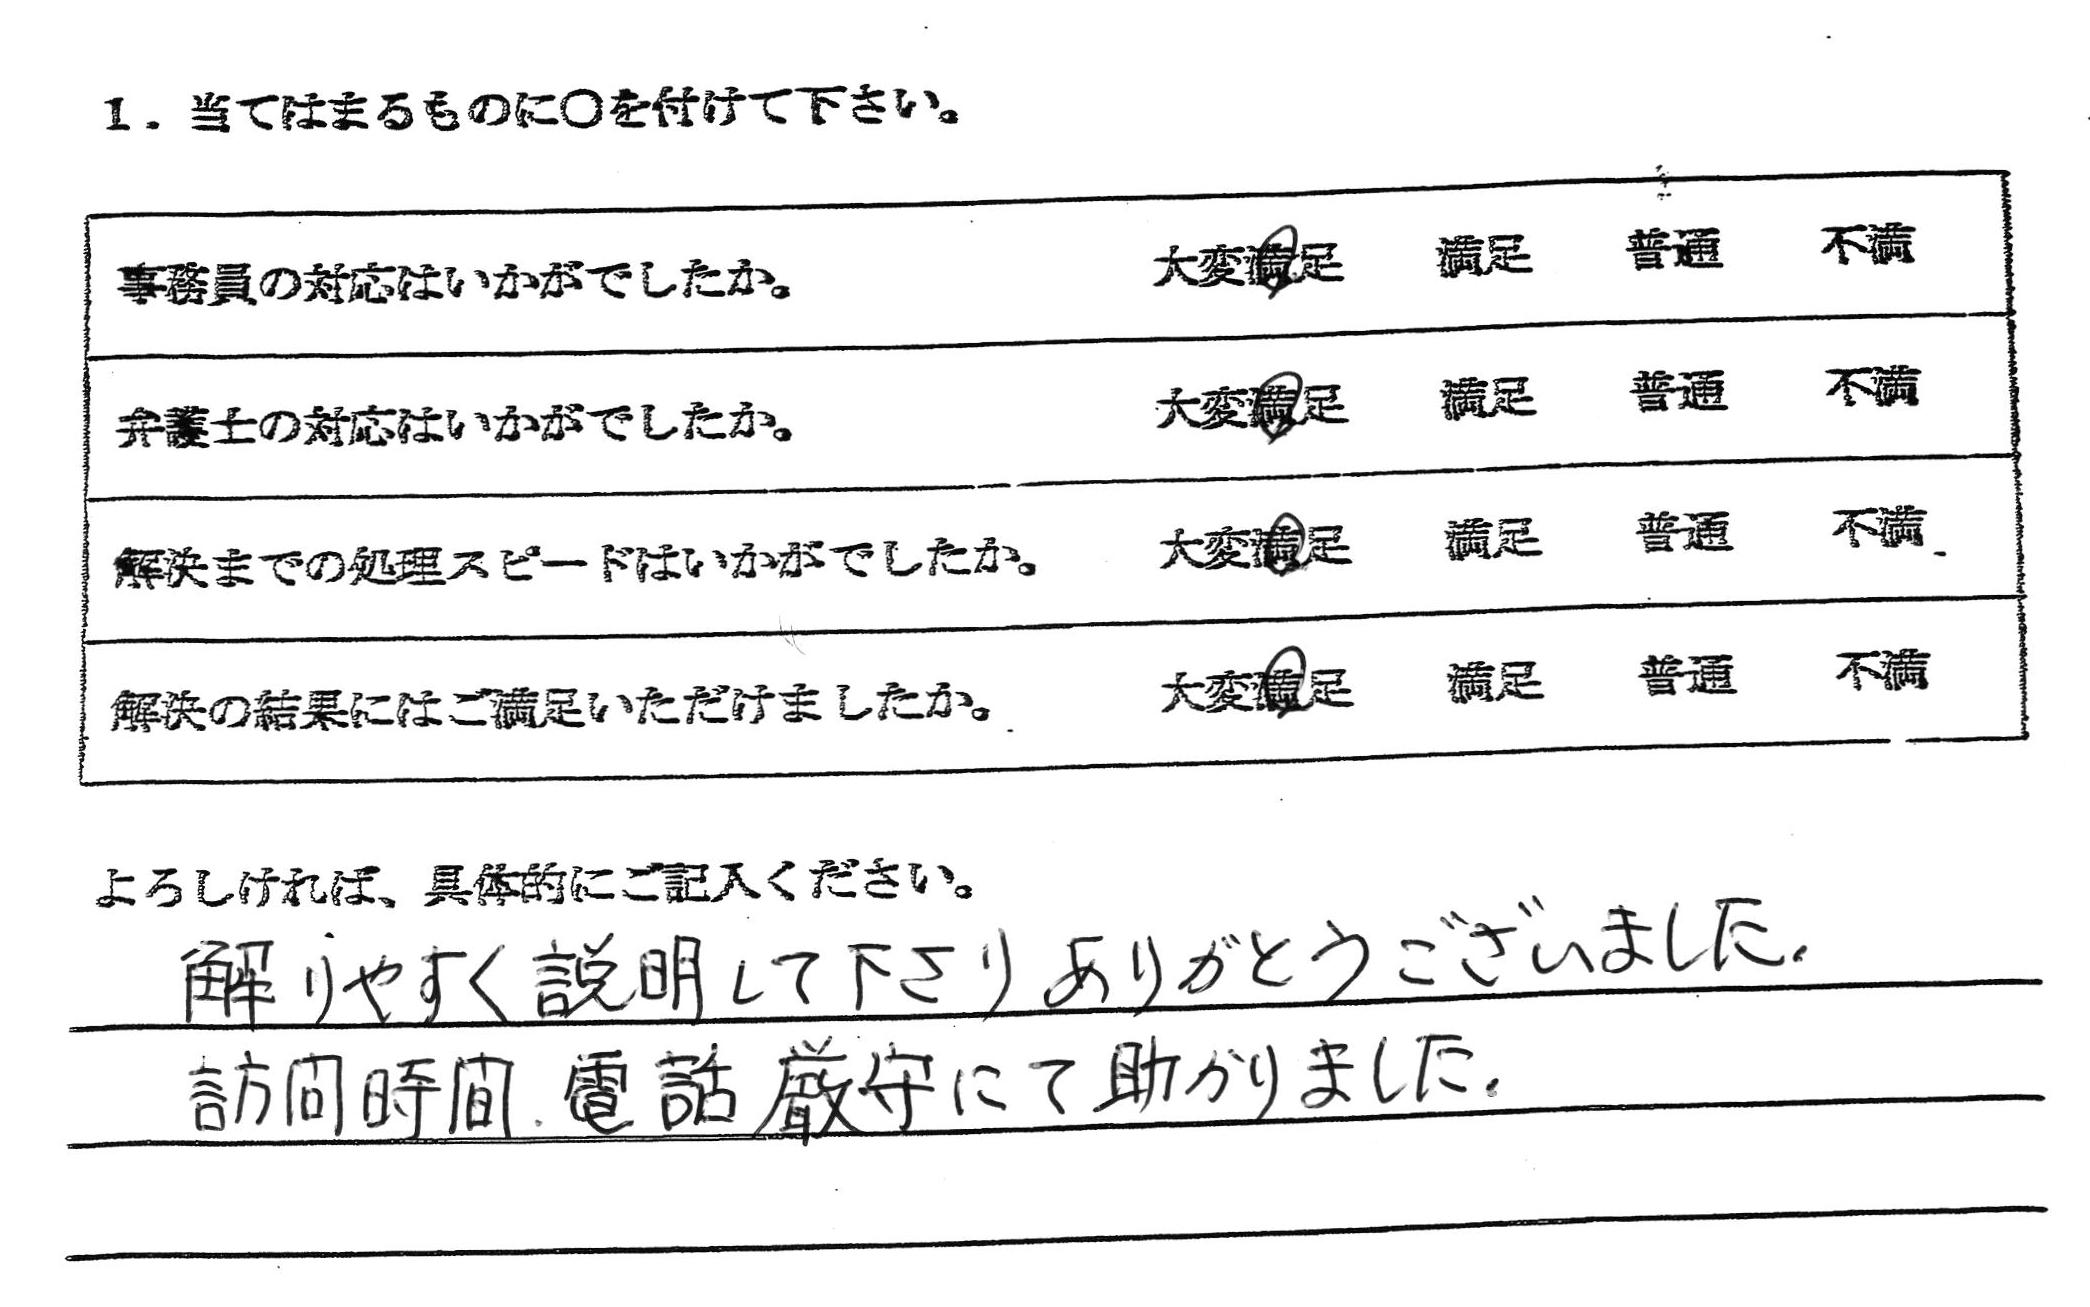 1. 当てはまるものに〇を付けて下さい。
事務員の対応はいかがでしたか。 大変満足 満足 普通 不満
弁護士の対応はいかがでしたか。 大変満足 満足 普通 不満
解決までの処理スピードはいかがでしたか。 大変満足 満足 普通 不満
解決の結果にはご満足いただけましたか。 大変満足 満足 普通 不満
よろしければ、具体的にご記入ください。
解りやすく説明して下さりありがとうございました.
訪問時間.電話厳守にて助かりました.